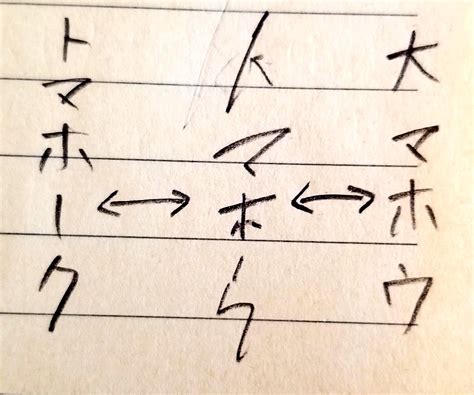 大マホウ
マホ
トマホーク